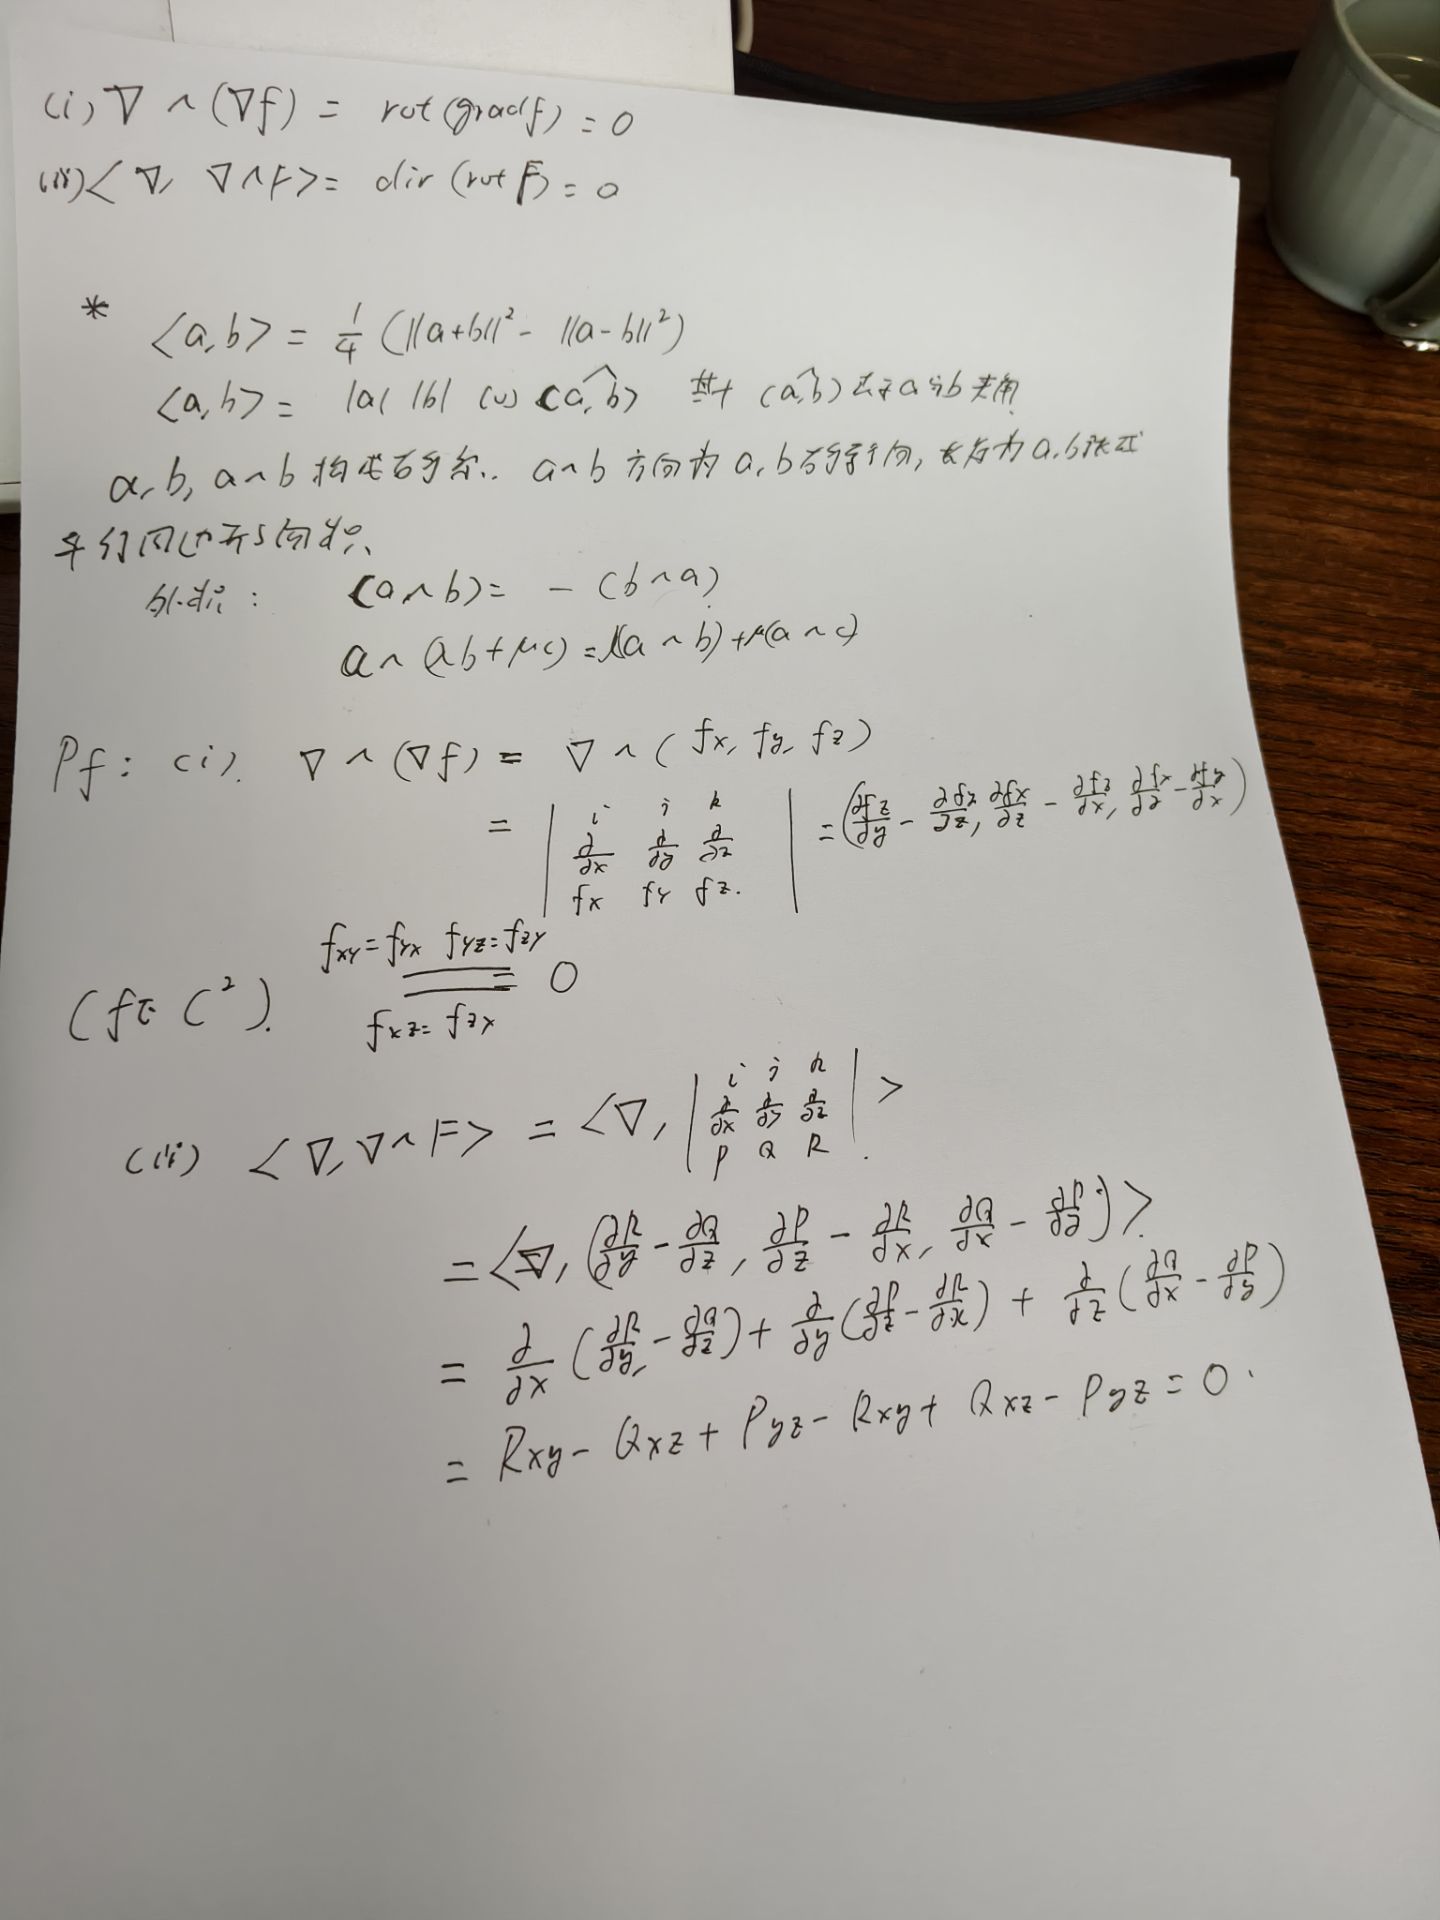 (i) ∇ ∧ (∇f) = rot(gradf) = 0
(ii) <∇, ∇∧F> = div (rot F) = 0
* <a,b> = 1/4 (||a+b||² - ||a-b||²)
<a,b> = |a| |b| cos <a,b> 其中 (a,b)表示a与b夹角.
a, b, a∧b 构成右手系. a∧b 方向为 a, b右手方向, 长度为 a,b张成
平行四边形面积.
外积: (a∧b) = - (b∧a)
a∧(λb+μc) = λ(a∧b)+μ(a∧c)
Pf: (i). ∇∧(∇f) = ∇∧( fx, fy, fz)
= | i j k ∂/∂x ∂/∂y ∂/∂z fx fy fz. | = (∂fz/∂y - ∂fz/∂z, ∂fx/∂z - ∂fz/∂x, ∂fx/∂z - ∂fy/∂x)
fxy=fyx fyz=fzy
(f∈C²). = 0
fxz=fzx
(ii) <∇, ∇∧F> = <∇, | i j k ∂/∂x ∂/∂y ∂/∂z P Q R | >
= <∇, (∂R/∂y - ∂Q/∂z, ∂P/∂z - ∂R/∂x, ∂Q/∂x - ∂P/∂z)>
= ∂/∂x (∂R/∂y - ∂Q/∂z) + ∂/∂y (∂P/∂z - ∂R/∂x) + ∂/∂z (∂Q/∂x - ∂P/∂y)
= Rxy - Qxz + Pyz - Rxy + Qxz - Pyz = 0.